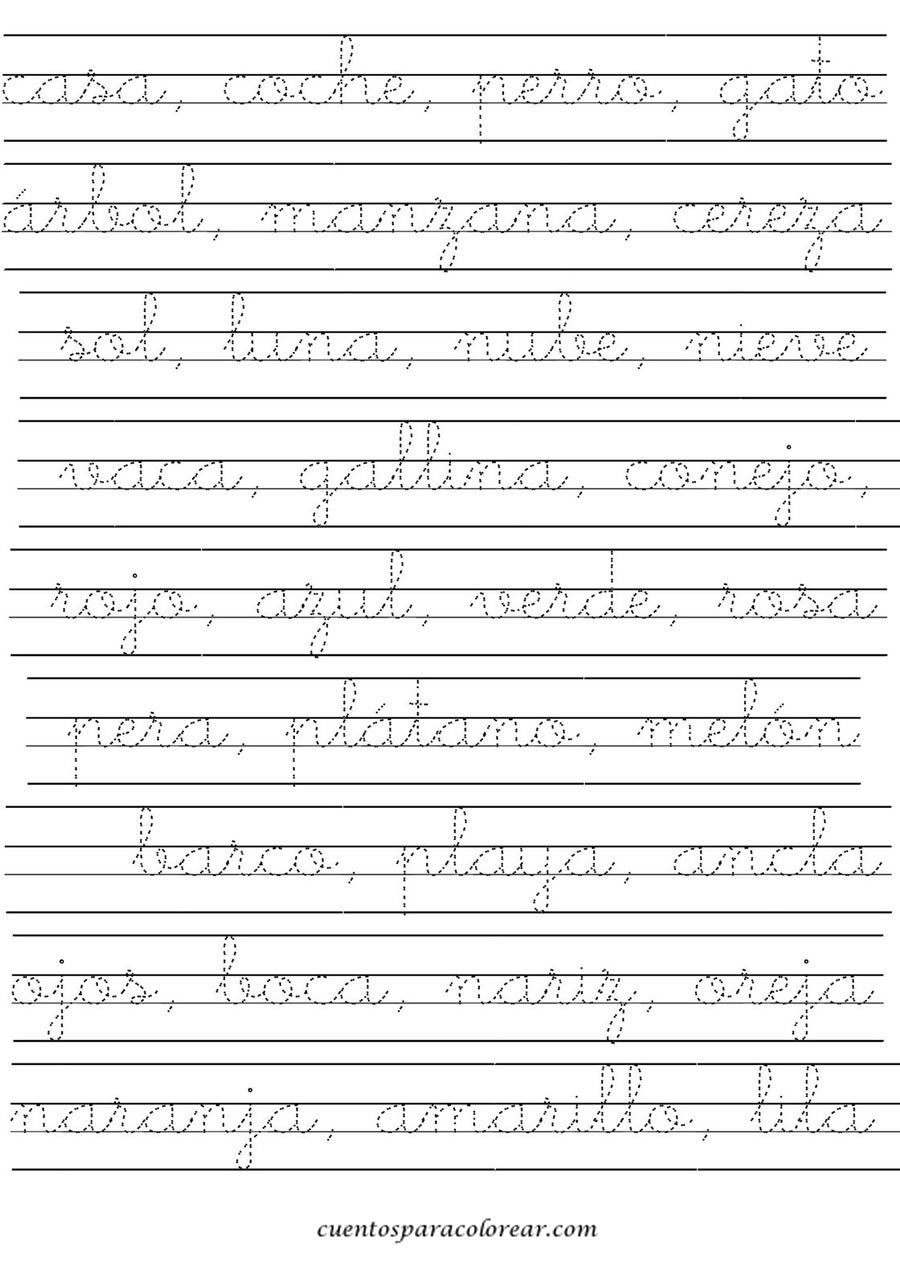 casa, coche, perro, gato
árbol, manzana, cereza
sol, luna, nube, nieve
vaca, gallina, conejo,
rojo, azul, verde, rosa
pera, plátano, melón
barco, playa, ancla
ojos, boca, nariz, oreja
naranja, amarillo, lila
cuentosparacolorear.com